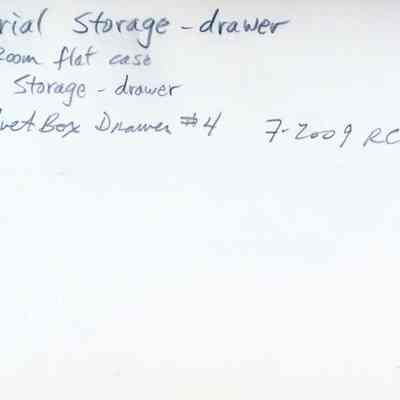 rial Storage - drawer
Room flat case
Storage - drawer
vet Box Drawer #4 7-2009 RC